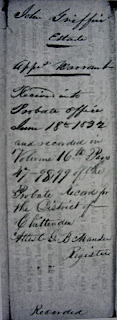 John Griffin
Estate
App.t Warrant
Received into
Probate office
June 18th 1832
and recorded in
Volume 16th Page
47-98 99 of the
Probate Record for
the District of
Chittenden
Attest B Mander
Register
Recorded